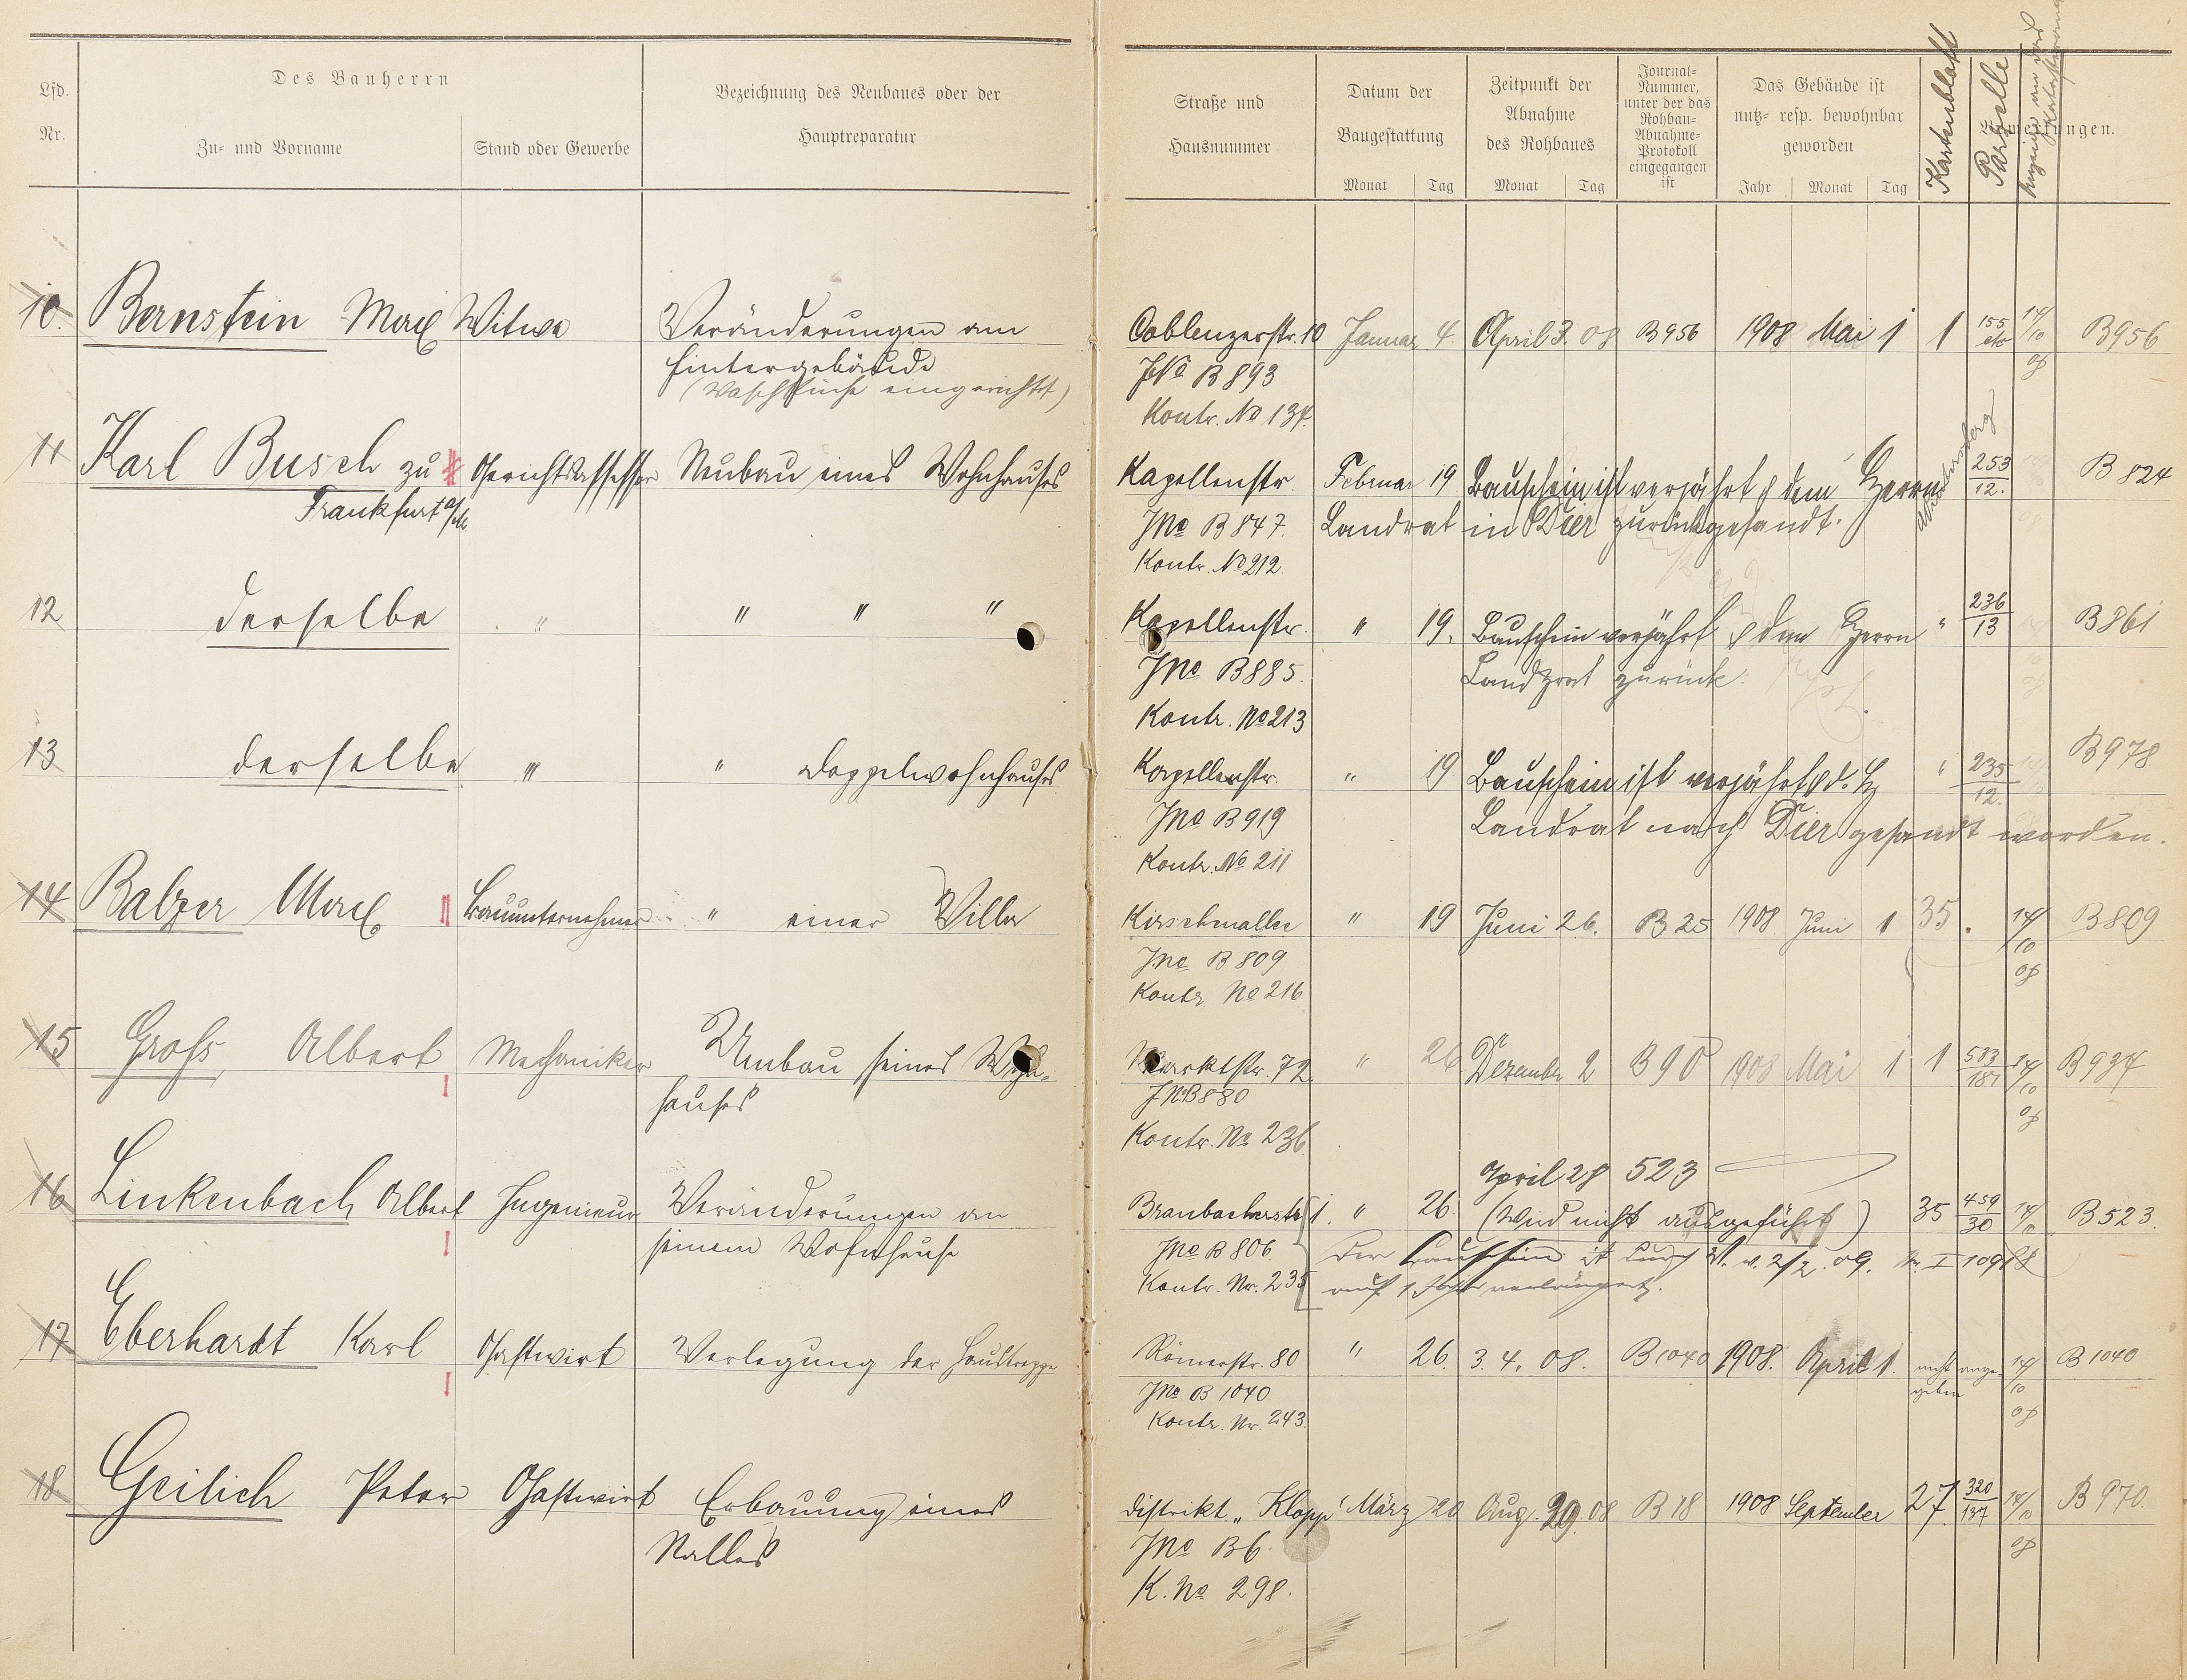 Lfd.
Nr.
Des Bauherrn
Zu- und Vorname
Stand oder Gewerbe
Bezeichnung des Neubaues oder der
Hauptreparatur
Straße und
Hausnummer
Datum der
Baugestattung
Monat Tag
Zeitpunkt der
Abnahme
des Rohbaues
Monat Tag
Journal-
Nummer,
unter der das
Rohbau-
Abnahme-
Protokoll
eingegangen
ist
Das Gebäude ist
nutz- resp. bewohnbar
geworden
Jahr Monat Tag
Kartenblatt
Parzelle
10. Bernstein Max Witwe Veränderungen am Coblenzerstr. 10 Januar 4. April 3. 08 B 956 1908 Mai 1 1 155 etc 14/10 08 B 956
Hintergebäude JNo B 893
(Waschküche eingerichtet) Kontr. No 134.
11 Karl Busch zu Gerichtsassessor Neubau eines Wohnhauses Kapellenstr Februar 19 Bauschein ist verjährt & dem Herrn 253/12. B 824
Frankfurt a/M. JNo B 847. Landrat in Dier zurückgesandt.
Kontr. No 212.
12 derselbe " " " " Kapellenstr. " 19. Bauschein verjährt & dem Herrn " 236/13 B 861
JNo B 885. Landrat zurück.
Kontr. No 213
13 derselbe " " Doppelwohnhauses Kapellenstr. " 19 Bauschein ist verjährt & d. H " 235/12. B 978
JNo B 919 Landrat nach Dier gesandt worden.
Kontr. No 211
14 Balzer Max Bauunternehmer " einer Villa Kirschnallee " 19 Juni 26. B 25 1908 Juni 1 35. 14/10 08 B 809
JNo B 809
Kontr. No 216
15 Groß, Albert Mechaniker Umbau seines Wohn- Marktstr. 72. " 26 Dezember 2 B 90 1908 Mai 1 1 583/187 14/10 08 B 934
hauses JNo B 880
Kontr. No 236.
April 28 523
16 Linkenbach Albert Ingenieur Veränderungen an Braubacherstr 1. " 26. (Wird nicht ausgeführt) 35 459/30 14/10 B 523.
seinem Wohnhause JNo B 806. Der Bauschein ist durch V. v. 2/2. 09. No I 109
Kontr. Nr. 235 auf 1 Jahr verlängert.
17 Eberhardt Karl Gastwirt Verlegung der Haustreppe Römerstr. 80 " 26. 3. 4. 08. B 1040 1908. April 1. nicht ange- 14/10 08 B 1040
JNo B 1040 geben
Kontr. Nr. 243.
18. Geilich Peter Gastwirt Erbauung eines Distrikt „Klopp" März 20 Aug. 29. 08 B 18 1908 September 27 320/137 14/10 08 B 970.
Stalles JNo B 6.
K. No 298.